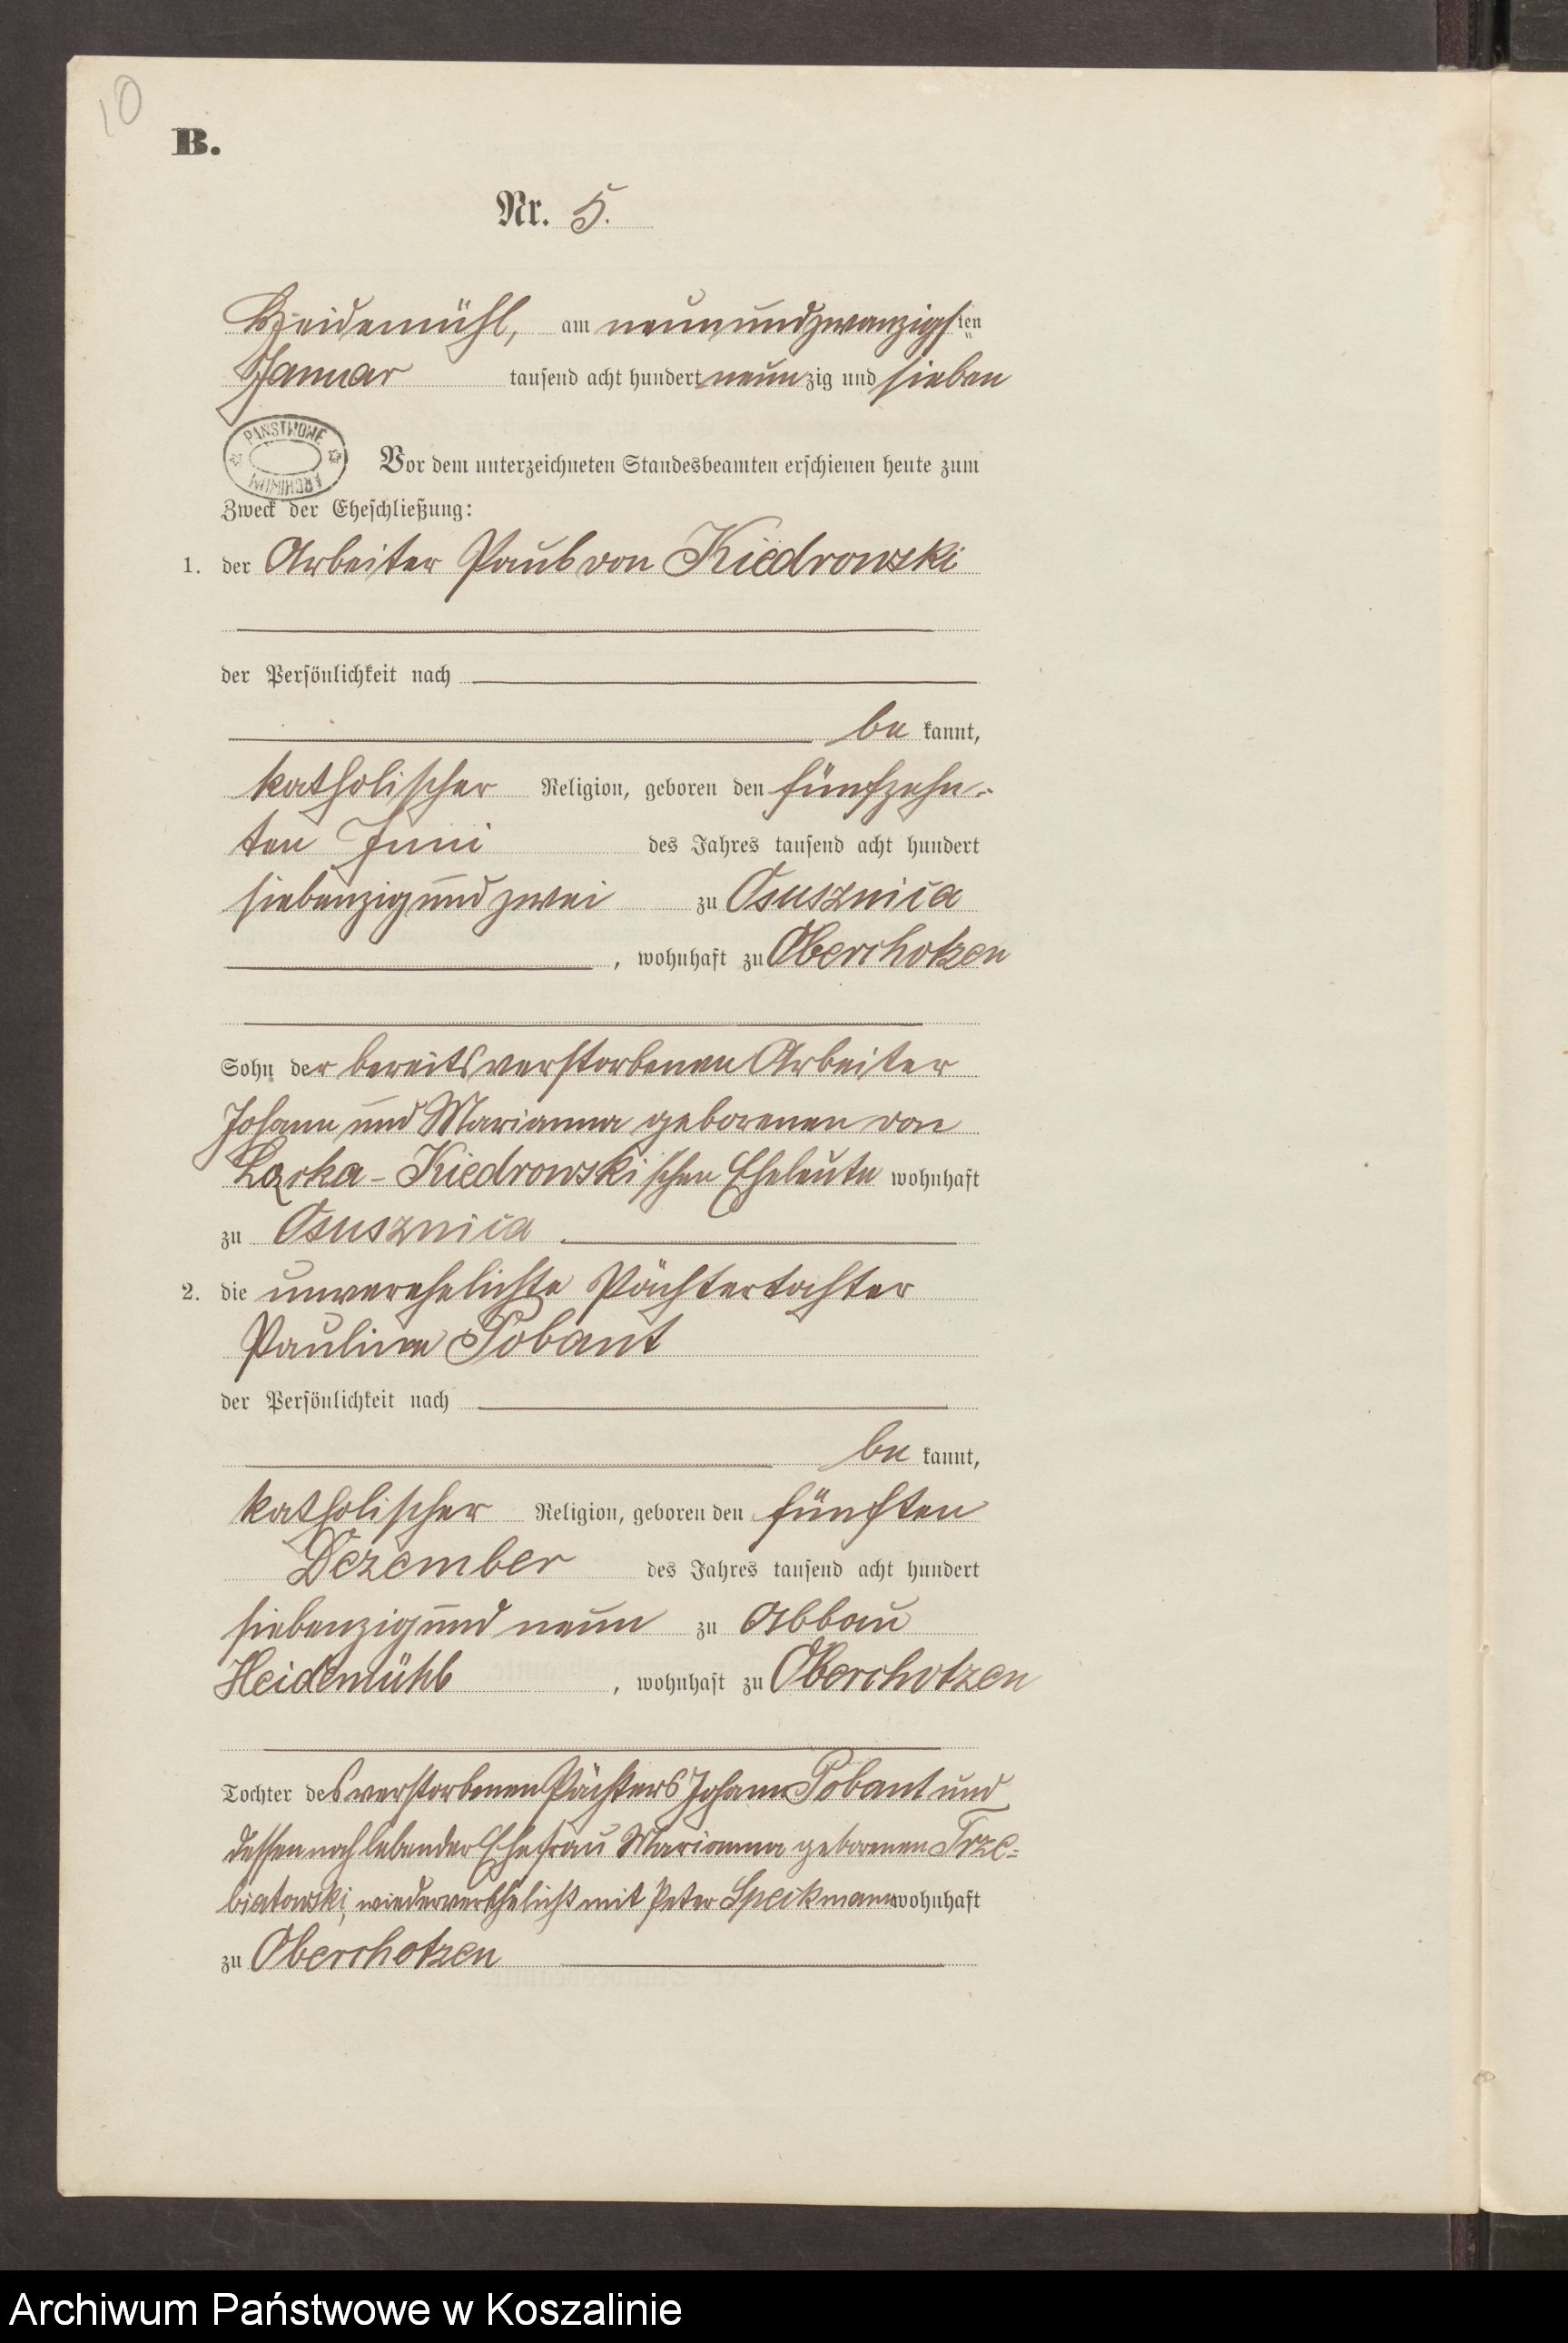 10
B.
Nr. 5.
Heidemühl, am neunundzwanzigsten
Januar tausend acht hundert neunzig und sieben
PAŃSTWOWE
ARCHIWUM
Vor dem unterzeichneten Standesbeamten erschienen heute zum
Zweck der Eheschließung:
1. der Arbeiter Paul von Kiedrowski
der Persönlichkeit nach
be kannt,
katholischer Religion, geboren den fünfzehn-
ten Juni des Jahres tausend acht hundert
siebenzig und zwei zu Osusznica
, wohnhaft zu Oberchotzen
Sohn der bereits verstorbenen Arbeiter
Johann und Marianna geborenen von
Kiedrowskischen Eheleute wohnhaft
zu Osusznica
2. die unverehelichte Pächtertochter
Pauline Pobant
der Persönlichkeit nach
be kannt,
katholischer Religion, geboren den fünften
Dezember des Jahres tausend acht hundert
siebenzig und neun zu Abbau
Heidemühl , wohnhaft zu Oberchotzen
Tochter des verstorbenen Pächters Johann Pobant und
dessen noch lebender Ehefrau Marianna geborenen Trze-
biatowski, wiederverehelicht mit Peter Speikmann wohnhaft
zu Oberchotzen
Archiwum Państwowe w Koszalinie